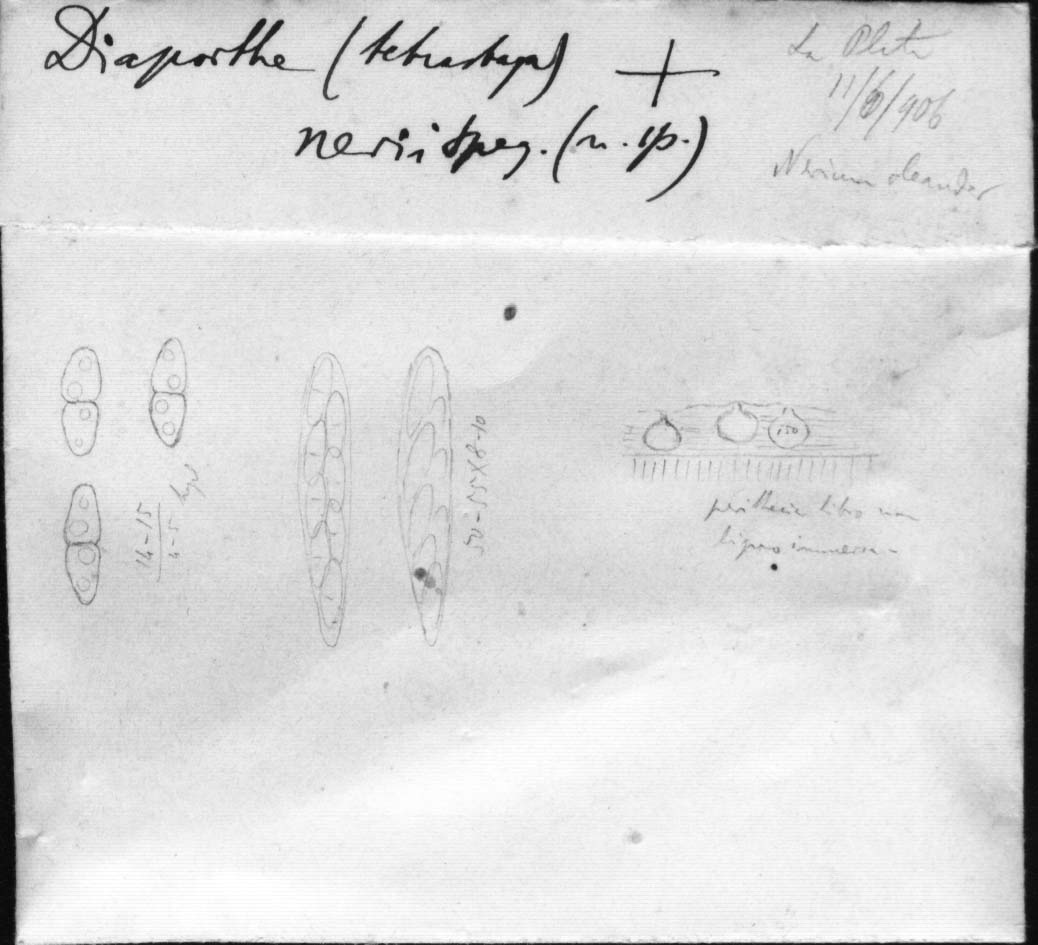 Diaporthe (tetrastaga) +
nerii Speg. (n. sp.)
La Plata
11/6/906
Nerium oleander
14-15
4-5
hyal
50-55 X 8-10
150
perithecia libro non
ligno immersa-